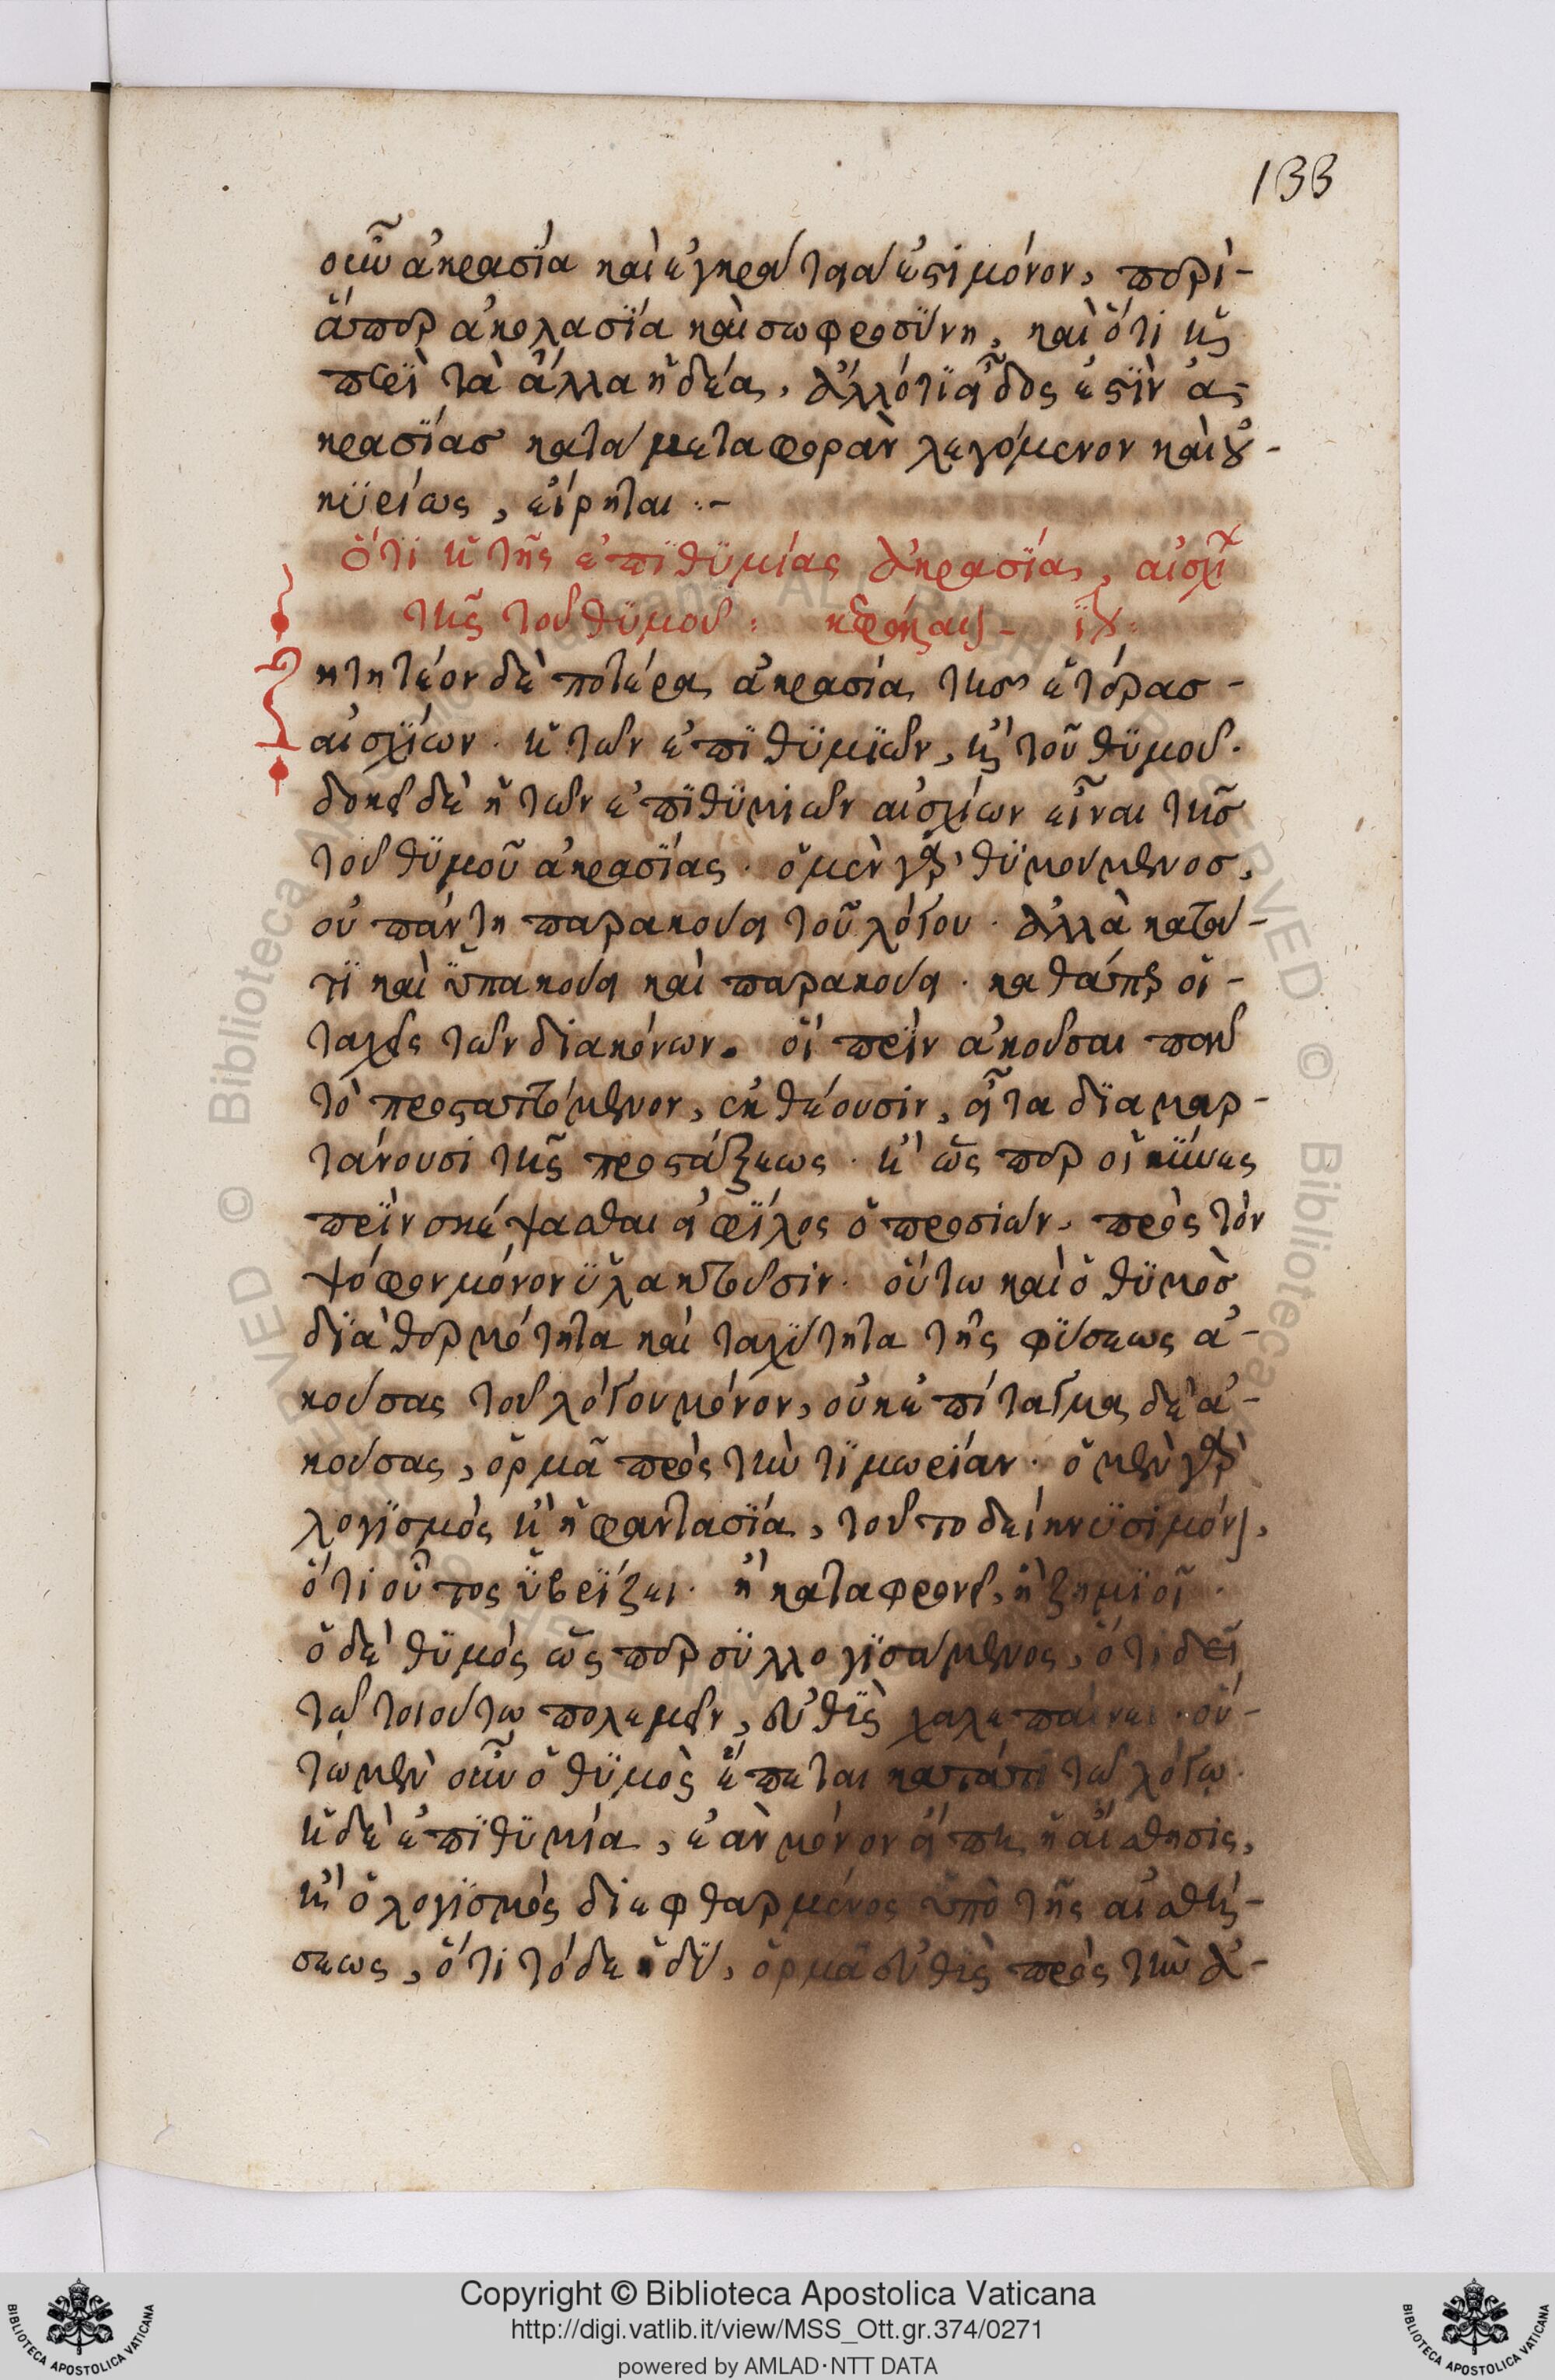 133
οὖν ἀκρασία καὶ ἐγκράτεια ἐστὶ μόνον, περὶ-
ἅπερ ἀκολασία καὶ σωφροσύνη, καὶ ὅτι ἡ
περὶ τὰ ἄλλα ἡδέα, ἀλλότι εἶδος ἐστὶν ἀ-
κρασίας κατὰ μεταφορὰν λεγόμενον καὶ οὐ-
κυρίως, εἴρηται :-
ὅτι ἡ τῆς ἐπιθυμίας ἀκρασία, αἰσχί
τῆς τοῦ θυμοῦ:
Ζ
ητητέον δὲ ποτέρα ἀκρασία τῆς ἑτέρας-
αἰσχίων. ἡ τῶν ἐπιθυμιῶν, ἢ τοῦ θυμοῦ.
δοκεῖ δὲ ἡ τῶν ἐπιθυμιῶν αἰσχίων εἶναι τῆς
τοῦ θυμοῦ ἀκρασίας. ὁ μὲν γὰρ θυμούμενος,
οὐ πάντη παρακούει τοῦ λόγου. ἀλλὰ κατά-
τι καὶ ὑπακούει καὶ παρακούει. καθάπερ οἱ-
ταχεῖς τῶν διακόνων. οἳ πρὶν ἀκοῦσαι πᾶν
τὸ προσταττόμενον, ἐκθέουσιν, εἶτα διαμαρ-
τάνουσι τῆς προστάξεως. ἢ ὥσπερ οἱ κύνες
πρὶν σκέψασθαι εἰ φίλος ὁ προσιὼν, πρὸς τὸν
ψόφον μόνον ὑλακτοῦσιν. οὕτω καὶ ὁ θυμὸς
διὰ θερμότητα καὶ ταχύτητα τῆς φύσεως ἀ-
κούσας τοῦ λόγου μόνον, οὐκ ἐπίταγμα δὲ ἀ-
κούσας, ὁρμᾶ πρὸς τὴν τιμωρίαν. ὁ μὲν γὰρ
λογισμὸς ἢ ἡ φαντασία, τοῦτο δείκνυσι μόνον,
ὅτι οὗτος ὑβρίζει. ἢ καταφρονεῖ, ἢ ζημιοῖ.
ὁ δὲ θυμὸς ὥσπερ συλλογισάμενος, ὅτι δεῖ
τῶ τοιούτω πολεμεῖν, εὐθὺς χαλεπαίνει. οὕ-
τω μὲν οὖν ὁ θυμὸς ἕπεται κατάτι τῶ λόγω.
ἡ δὲ ἐπιθυμία, ἐὰν μόνον εἴπη ἡ αἴσθησις,
ἢ ὁ λογισμὸς διεφθαρμένος ὑπὸ τῆς αἰσθή-
σεως, ὅτι τόδε ἡδύ, ὁρμᾶ εὐθὺς πρὸς τὴν ἀ-
Copyright © Biblioteca Apostolica Vaticana
http://digi.vatlib.it/view/MSS_Ott.gr.374/0271
powered by AMLAD·NTT DATA
BIBLIOTECA APOSTOLICA VATICANA
BIBLIOTECA APOSTOLICA VATICANA